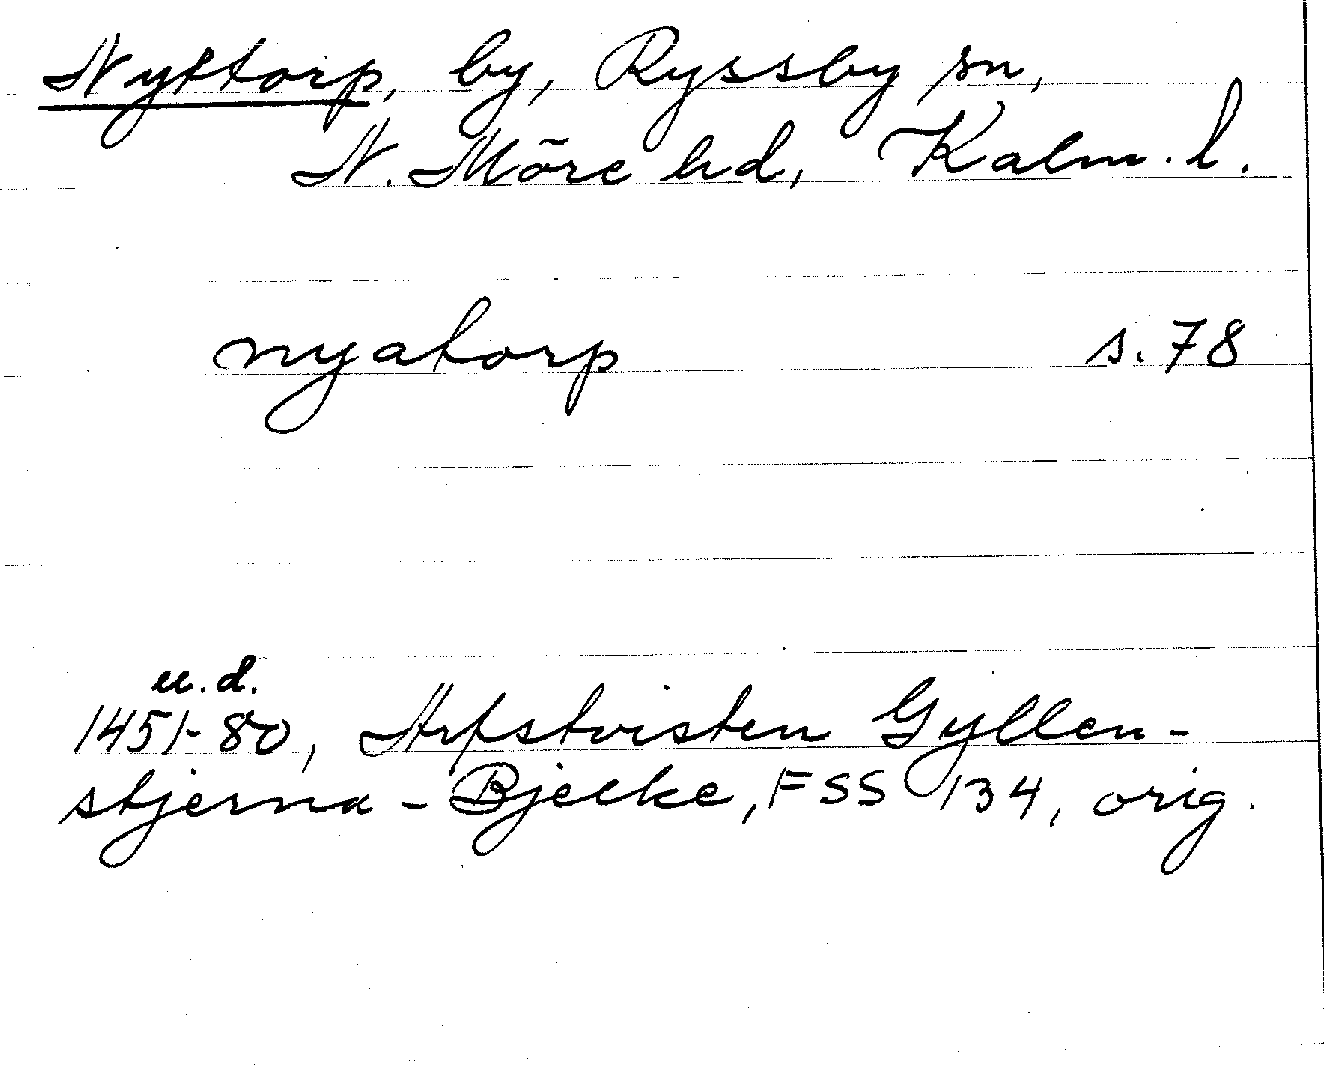 Nyttorp, by, Ryssby sn,
N. Möre hd, Kalm. l.
nyatorp s. 78
u.d.
1451-80, Arfstvisten Gyllen-
stjerna - Bjelke, FSS 134, orig.